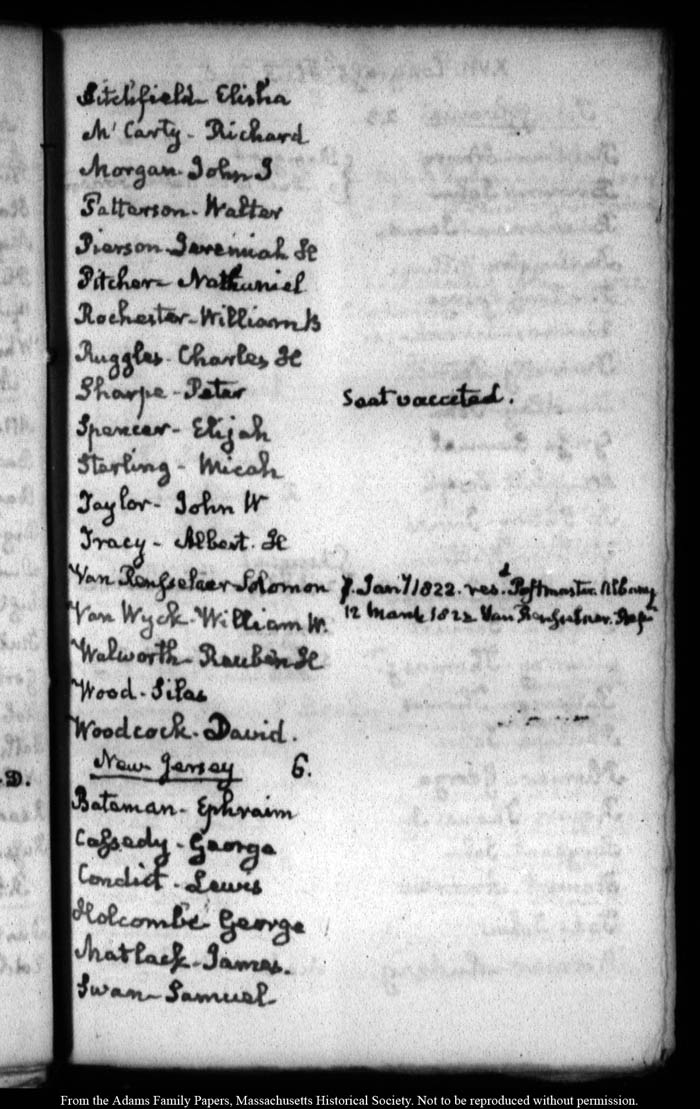 Litchfield Elisha
Mc Carty - Richard
Morgan - John J
Patterson - Walter
Pierson - Jeremiah H
Pitcher - Nathaniel
Rochester - William B
Ruggles - Charles H
Sharpe - Peter
Seat vaccated.
Spencer - Elijah
Sterling - Micah
Taylor - John W
Tracy - Albert. H
Van Rensselaer Solomon
Jany 1822. resd. Postmaster. Albany
Van Wyck - William W.
12 March 1822 Van Rensselaer.
Walworth - Reuben H
Wood - Silas
Woodcock - David.
New Jersey 6.
D.
Bateman - Ephraim
Cassedy - George
Condict - Lewis
Holcombe George
Matlack - James.
Swan - Samuel
From the Adams Family Papers, Massachusetts Historical Society. Not to be reproduced without permission.